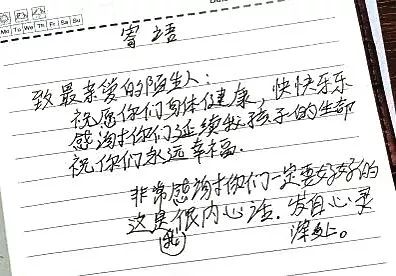 Mo Tu We Th Fr Sa Su
寄语
致最亲爱的陌生人：
祝愿你们身体健康，快快乐乐
感谢你们延续我孩子的生命
祝你们永远幸福.
非常感谢你们一定要好好的
这是很内心话.发自心灵
我